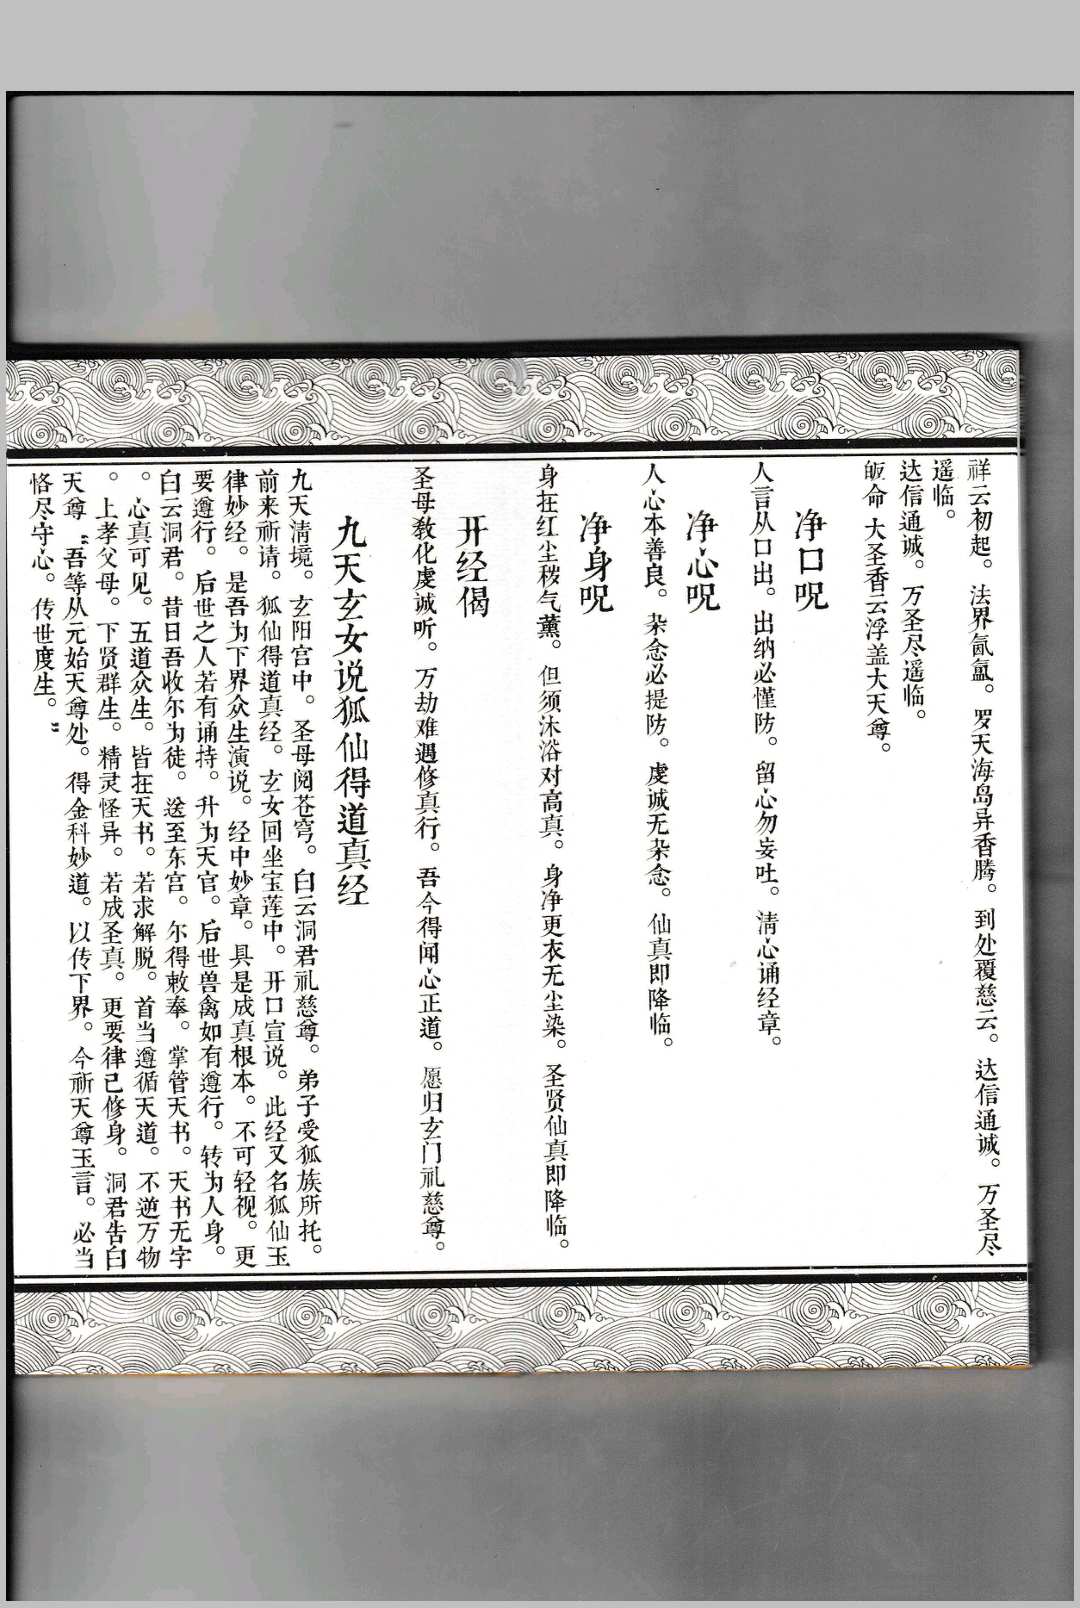 祥云初起。法界氤氲。罗天海岛异香腾。到处覆慈云。达信通诚。万圣尽
遥临。
达信通诚。万圣尽遥临。
皈命 大圣香云浮盖大天尊。
净口呪
人言从口出。出纳必慬防。留心勿妄吐。清心诵经章。
净心呪
人心本善良。杂念必提防。虔诚无杂念。仙真即降临。
净身呪
身在红尘秽气薰。但须沐浴对高真。身净更衣无尘染。圣贤仙真即降临。
开经偈
圣母教化虔诚听。万劫难遇修真行。吾今得闻心正道。愿归玄门礼慈尊。
九天玄女说狐仙得道真经
九天清境。玄阳宫中。圣母阅苍穹。白云洞君礼慈尊。弟子受狐族所托。
前来祈请。狐仙得道真经。玄女回坐宝莲中。开口宣说。此经又名狐仙玉
律妙经。是吾为下界众生演说。经中妙章。具是成真根本。不可轻视。更
要遵行。后世之人若有诵持。升为天官。后世兽禽如有遵行。转为人身。
白云洞君。昔日吾收尔为徒。送至东宫。尔得敕奉。掌管天书。天书无字
。心真可见。五道众生。皆在天书。若求解脱。首当遵循天道。不逆万物
。上孝父母。下贤群生。精灵怪异。若成圣真。更要律己修身。洞君告曰
天尊“吾等从元始天尊处。得金科妙道。以传下界。今祈天尊玉言。必当
恪尽守心。传世度生。”